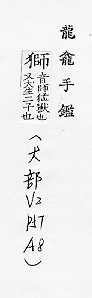 龍龕手鑑
獅音師猛獸也
又犬生二子也
(犬部
V2
P17
A8)